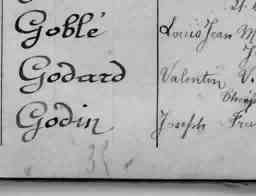 Goblé Louis Jean M
Godard Valentin V.
Godin Joseph Fra
35